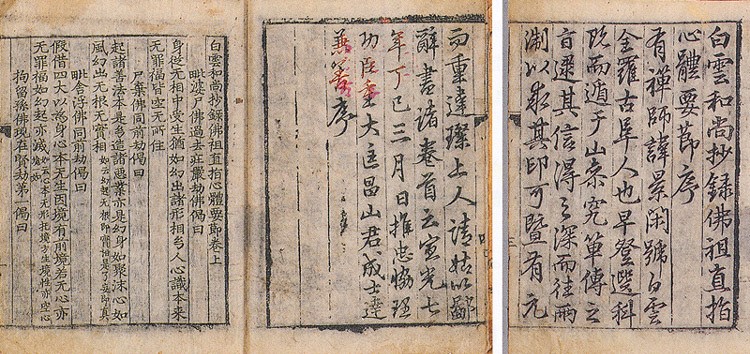 白雲和尚抄錄佛祖直指
心體要節序
有禪師諱景閑號白雲
全羅古阜人也早登選科
旣而遁于山宗究單傳之
旨逮其信得之深而往兩
淛以求其印可暨有元
而重違璨上人請姑以鄙
辭書諸卷首云宣光七
年丁巳三月日推忠協理
功臣重大匡昌山君成士達
序
白雲和尚抄錄佛祖直指心體要節卷上
毗婆尸佛過去莊嚴劫佛偈曰
身從无相中受生猶如幻出諸形相幻人心識本來
无罪福皆空无所住
尸棄佛同前劫偈曰
起諸善法本是幻造諸惡業亦是幻身如聚沫心如
風幻出无根无實相
毗舍浮佛同前劫偈曰
假借四大以爲身心本无生因境有前境若无心亦
无罪福如幻起亦滅
拘留孫佛現在賢劫第一偈曰